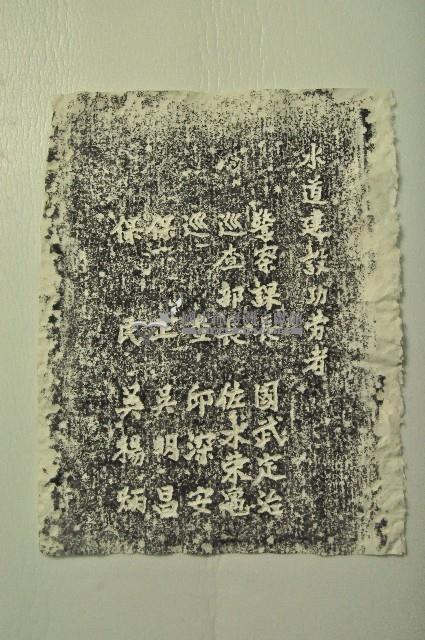 水道建設功勞者
警察課長 國武定治
巡查部長 佐木宋
巡 邱深安
保正 吳明昌
保民 吳楊炳